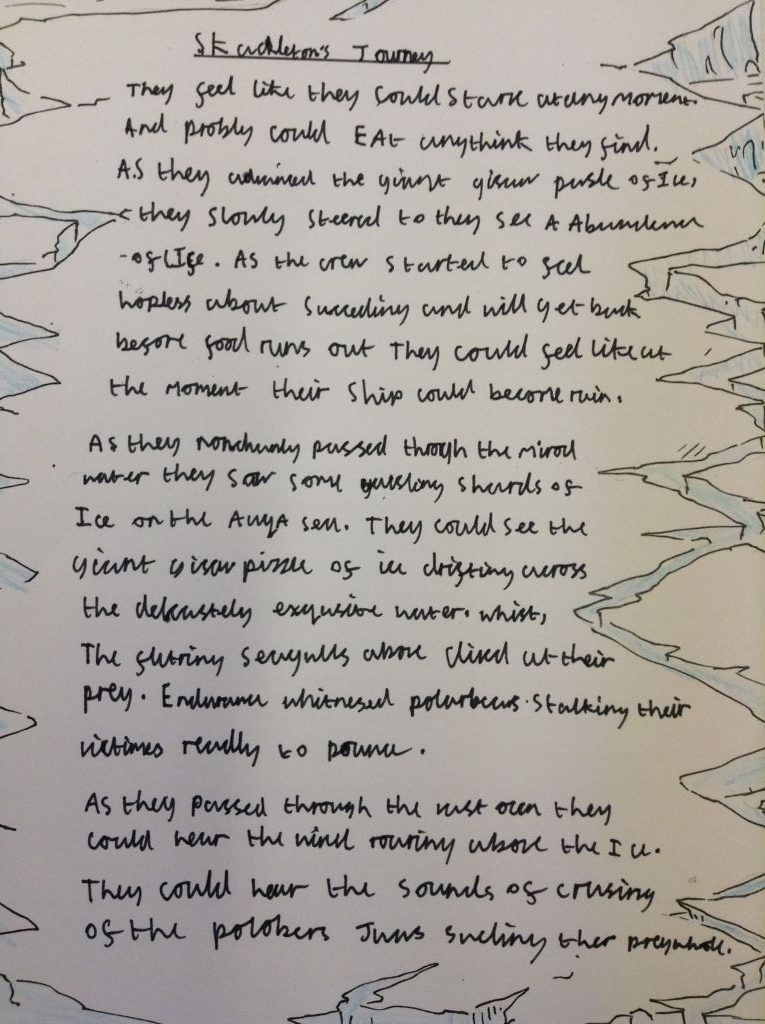 Shackleton's Journey
They feel like they could starve at any moment.
And probly could EAt anythink they find.
As they admired the giant puzzle of Ice,
they slowly steered to they see A Abundence
of Ice. As the crew started to feel
hopless about succeding and will get back
before food runs out They could feel like at
the moment their ship could become ruin.
As they nonchantly passed throgh the mirod
water they saw some shards of
Ice on the sea. They could see the
giant of ice drifting across
the delicastely exqusite water. whist,
The glittring seagulls above dived at their
prey. Endurance whitnesed polarbears stalking their
victimes readly to pounce.
As they passed through the vast ocen they
could hear the wind roaring above the Ice.
They could hear the sounds of crusing
of the polobers Jaws ther prey whole.